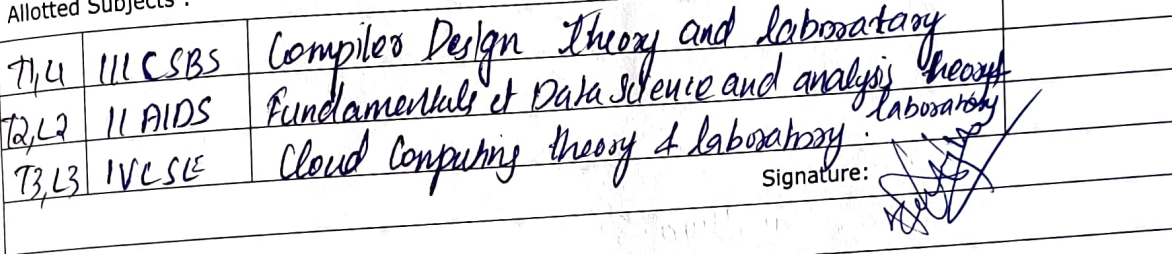 Allotted Subjects :
T1,L1 III CSBS Compiler Design Theory and laboratary
T2,L2 II AIDS Fundamentals of Data Science and analysis theory & laboratory
T3,L3 IV CSE Cloud Computing theory & laboratory.
Signature: